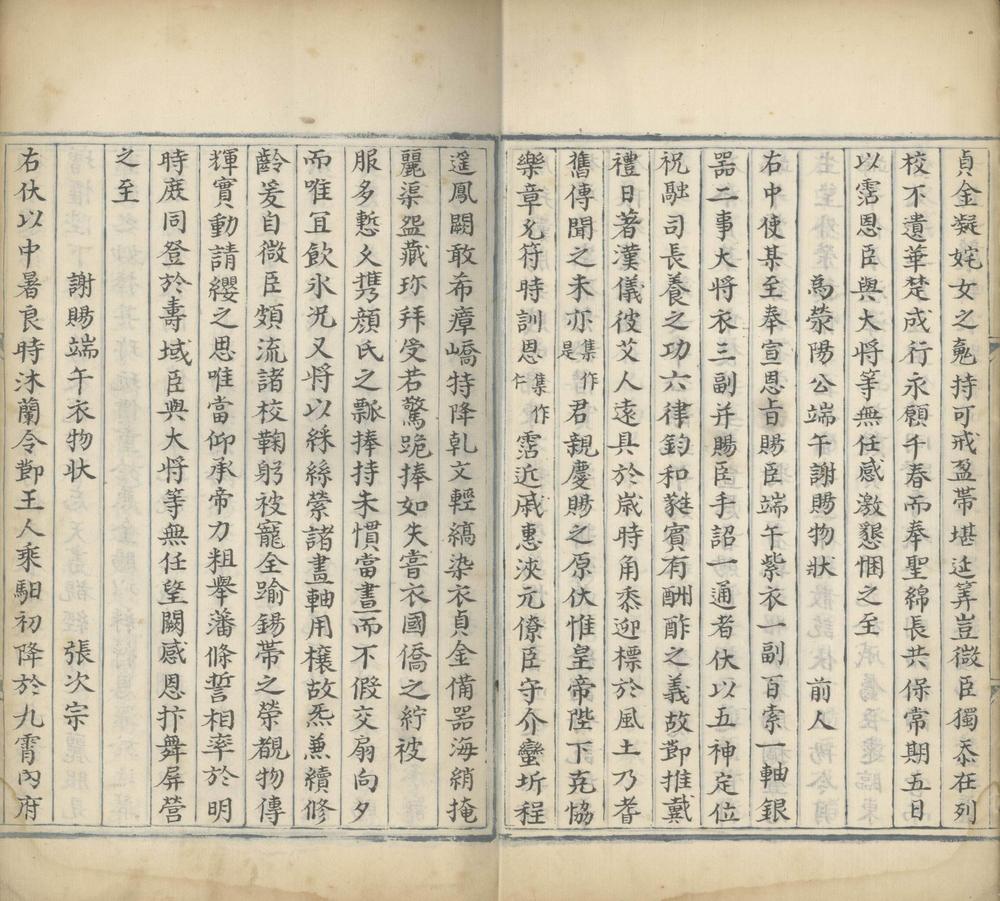 貞金凝姹女之䰟持可戒盈帶堪延筭豈微臣獨忝在列
校不遺華楚成行永願千春而奉聖綿長共保常期五日
以霑恩臣與大將等無任感激懇悃之至
爲滎陽公端午謝賜物狀 前人
右中使某至奉宣恩旨賜臣端午紫衣一副百索一軸銀
器二事大將衣三副并賜臣手詔一通者伏以五神定位
祝融司長養之功六律鈞和蕤賓有酬酢之義故鄷推戴
禮日著漢儀彼艾人遠具於歲時角黍迎標於風土乃耆
舊傳聞之未亦集作是君親慶賜之原伏惟皇帝陛下克協
樂章允符時訓恩集作仁霑近戚惠浹元僚臣守介蠻圻程
遥鳳闕敢希瘴嶠特降乹文輕縞染衣貞金備器海綃掩
麗渠盌藏珎拜受若驚跪捧如失嘗衣國僑之紵被
服多慙久携顔氏之瓢捧持未慣當晝而不假交扇向夕
而唯宜飲氷况又將以綵絲縈諸畫軸用禳故炁兼續修
齡爰自微臣頗流諸校鞠躬被寵全踰錫帶之榮覩物傳
輝實動請纓之思唯當仰承帝力粗舉藩條誓相率於明
時庻同登於壽域臣與大將等無任望闕感恩抃舞屏營
之至
謝賜端午衣物狀 張次宗
右伏以中暑良時沐蘭令鄷王人乘馹初降於九霄內府